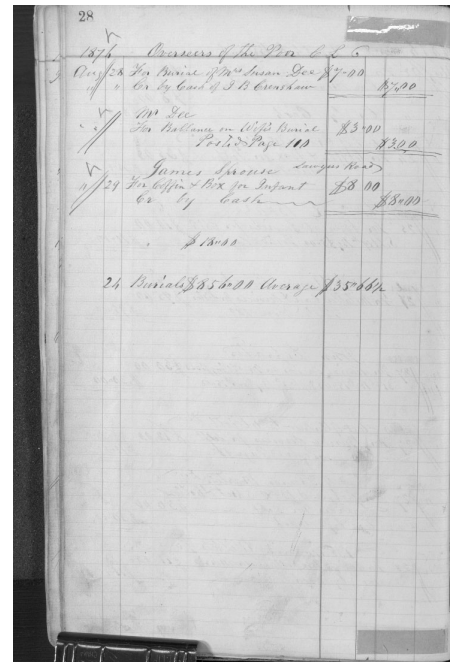 28
1876 Overseers of the Poor
Aug 28 For Burial of Mrs Susan Dee $7=00
" " Cr by Cash of J B Crenshaw $7.00
Mr Dee
" " For Ballance on Wifes Burial $3=00
Posted Page 110 $3.00
James Sprouse Road
" 29 For Coffin & Box for Infant $8 00
Cr by Cash $8=00
$18=00
24 Burials $856=00 Average $35=66⅔